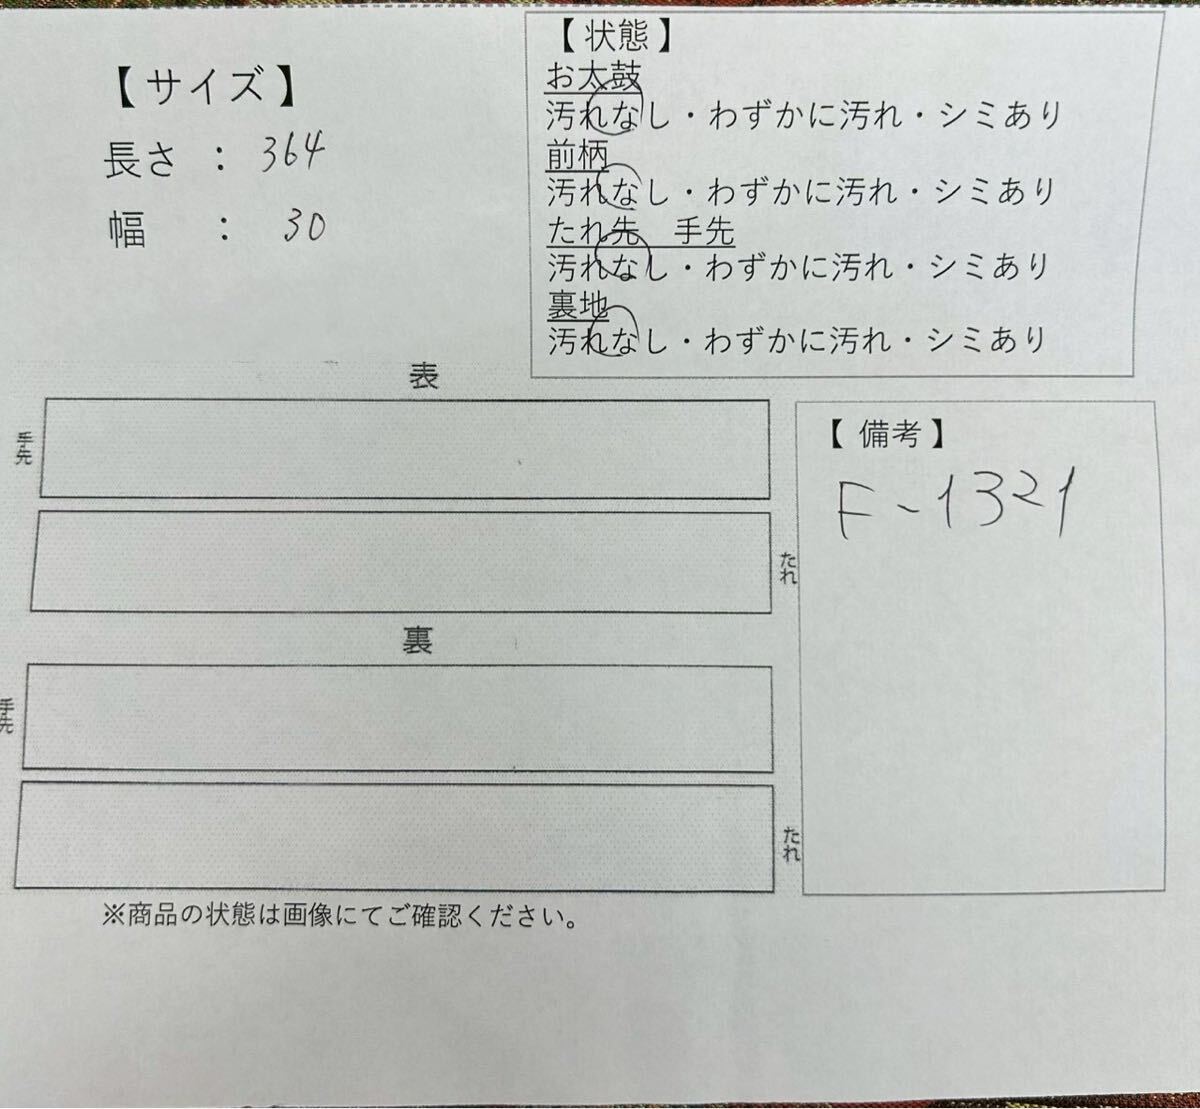 【 サイズ 】
長さ ： 364
幅 ： 30
【 状態 】
お太鼓
汚れなし・わずかに汚れ・シミあり
前柄
汚れなし・わずかに汚れ・シミあり
たれ先　手先
汚れなし・わずかに汚れ・シミあり
裏地
汚れなし・わずかに汚れ・シミあり
表
手先
たれ
裏
手先
たれ
【 備考 】
F-1321
※商品の状態は画像にてご確認ください。